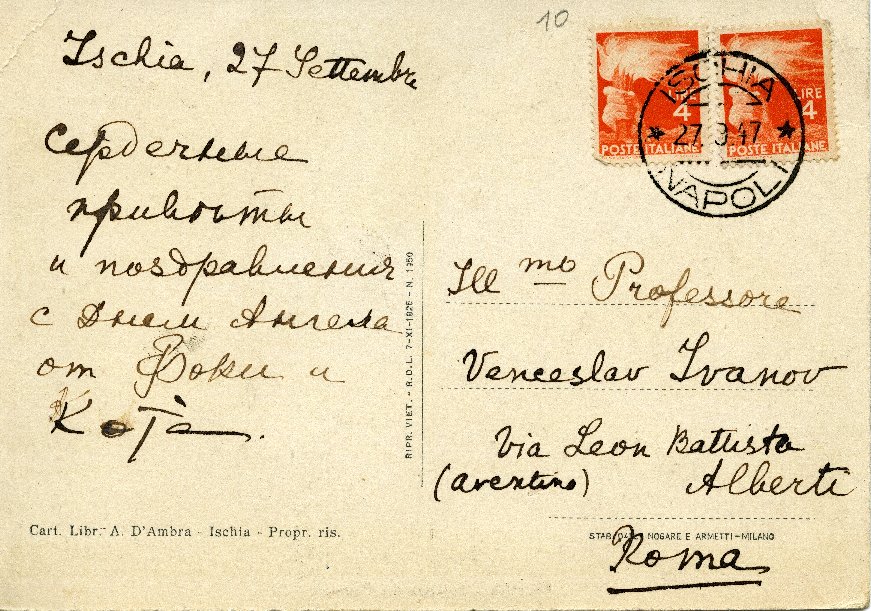 10
Ischia, 27 Settembre
Сердечные
привѣты
и поздравления
с Днем Ангела
от Фоки и
Кота.
LIRE
4
POSTE ITALIANE
LIRE
4
POSTE ITALIANE
ISCHIA
27.9.47
NAPOLI
Ill mo Professore
Venceslav Ivanov
Via Leon Battista
(Aventino) Alberti
Roma
RIPR. VIET. - R.D.L. 7-XI-1925 - N. 1950
Cart. Libr. A. D'Ambra - Ischia - Propr. ris.
NOGARE E ARMETTI - MILANO